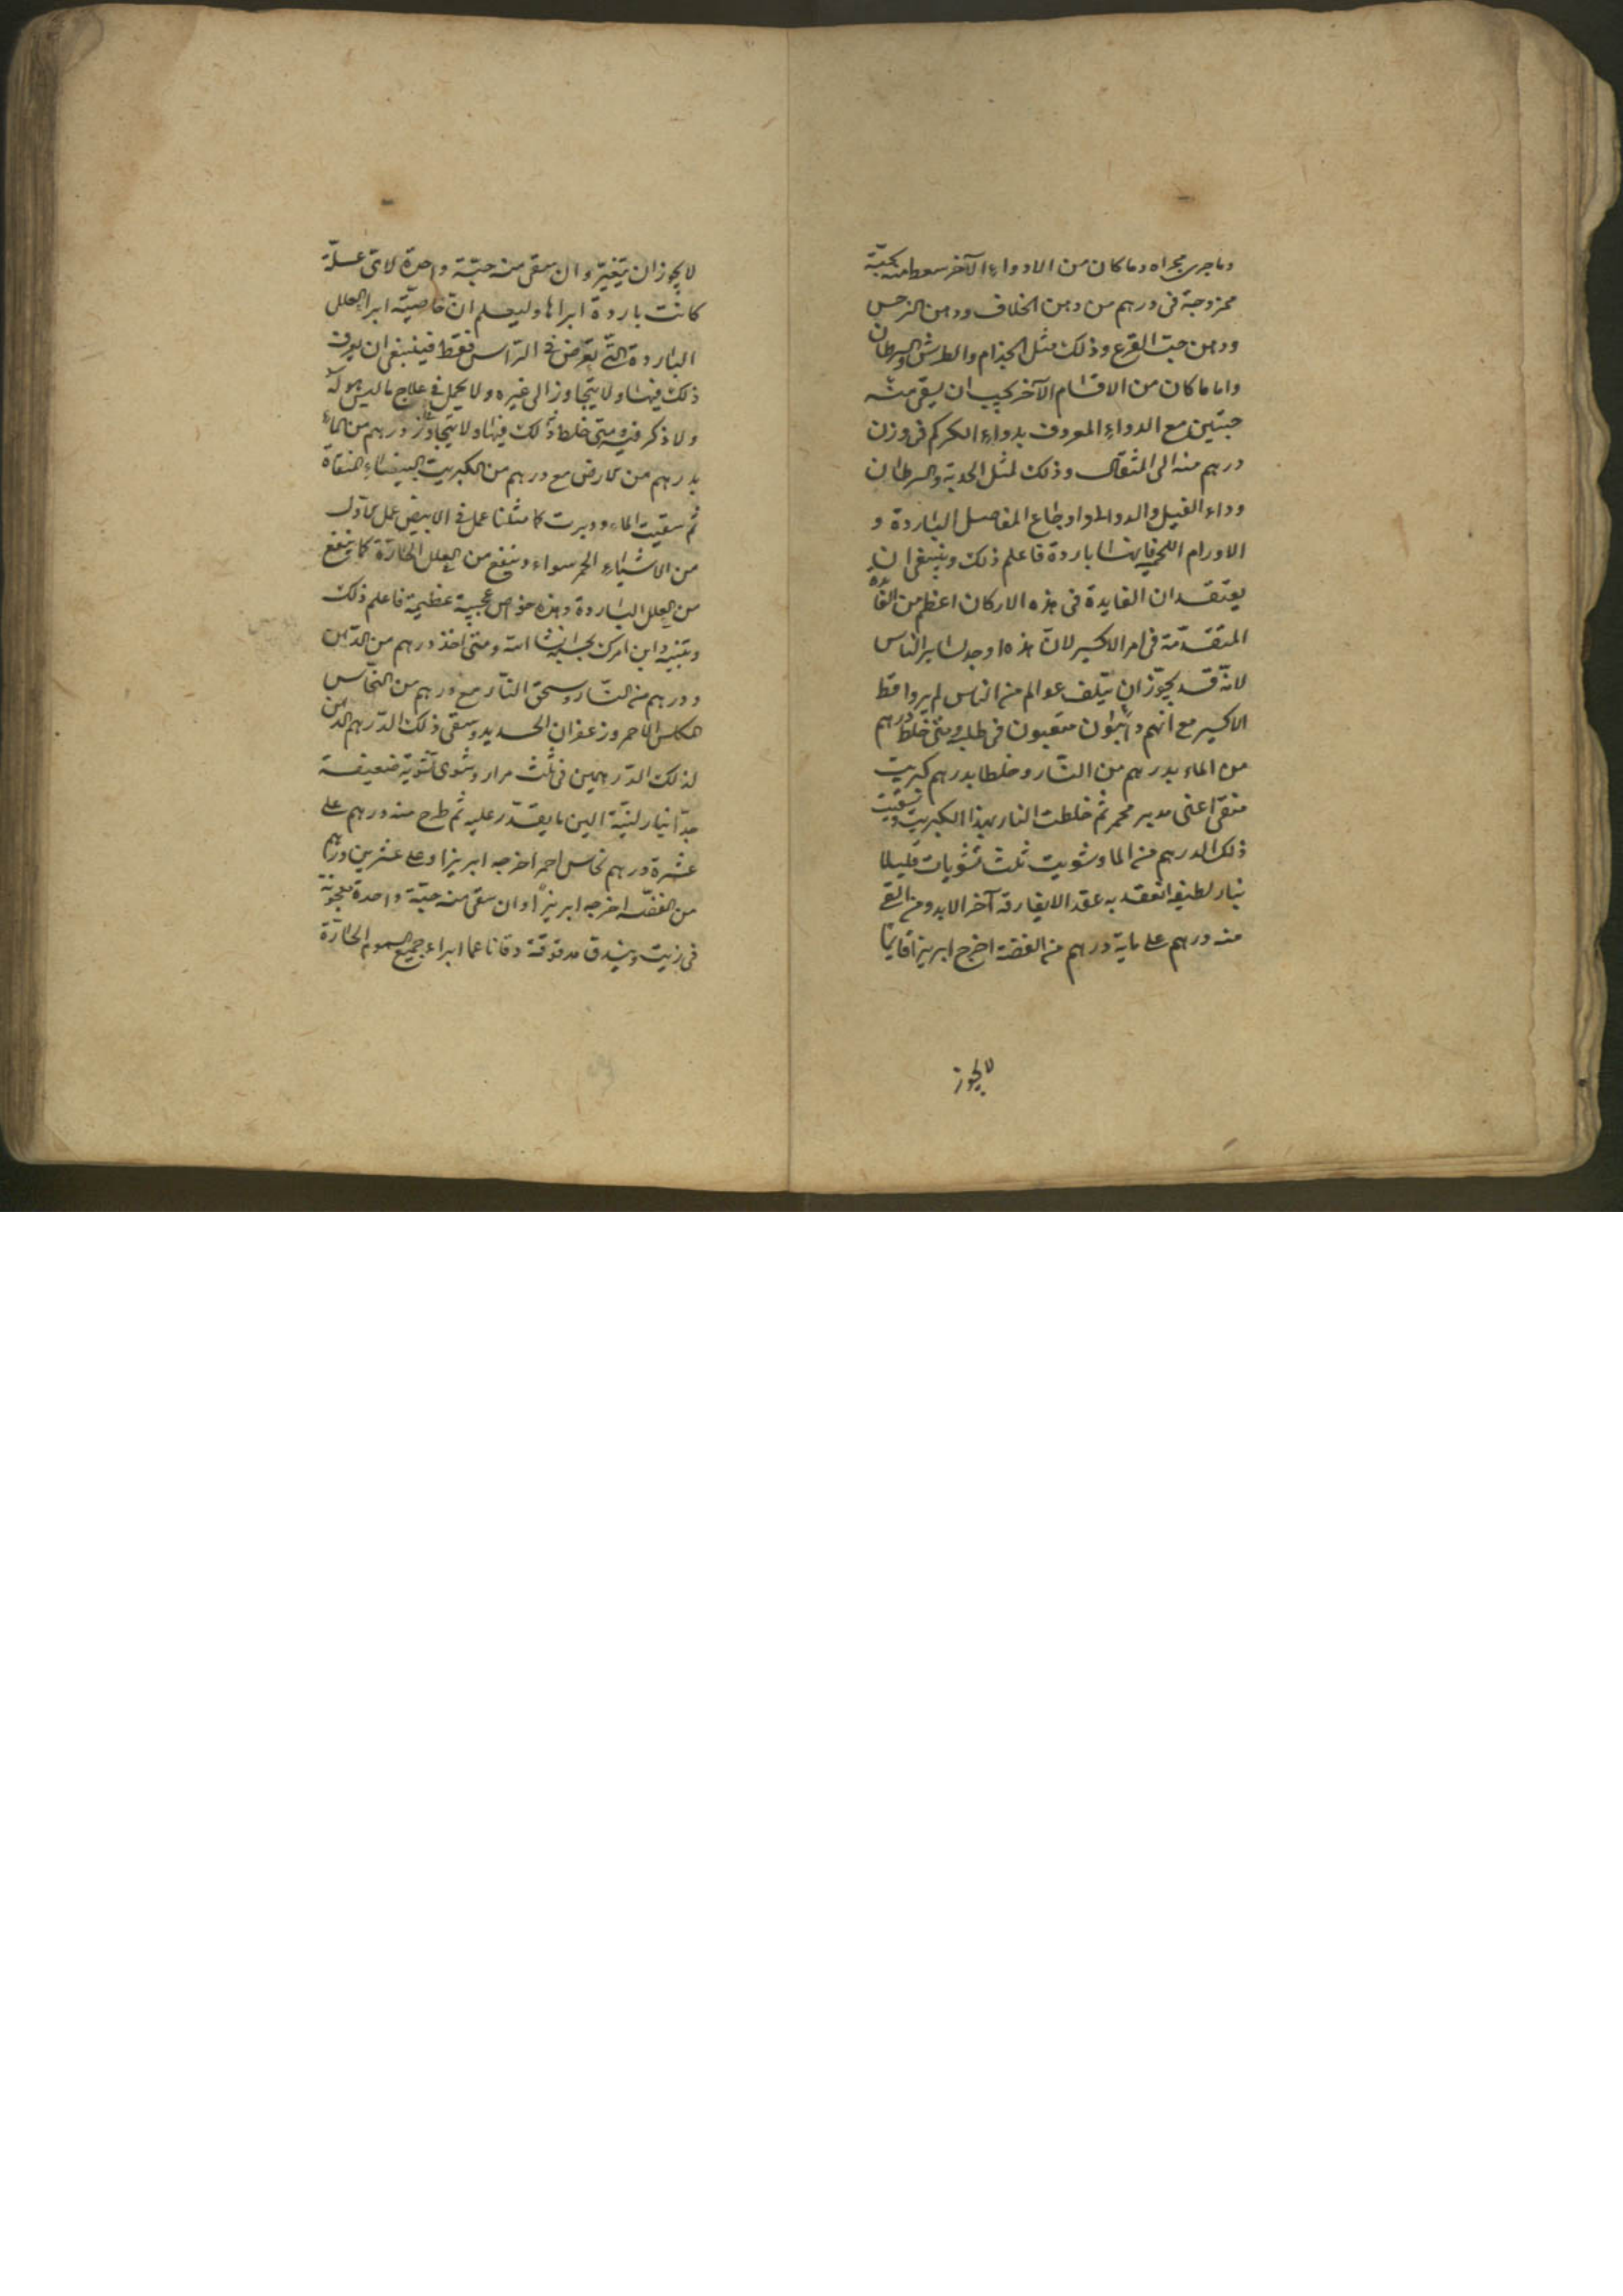 وما جرى مجراه وما كان من الادواء الآخر سعط منه بحبّة
ممزوجة فى درهم من دهن الخلاف ودهن النرجس
ودهن حبّ القرع وذلك مثل الجذام والطرش والسرطان
واما ما كان من الاقسام الآخر يجب ان يسقى منه
حبّتين مع الدواء المعروف بدواء الكركم فى وزن
درهم منه الى المثقال وذلك لمثل الحدبة والسرطان
وداء الفيل والدوالى واوجاع المفاصل الباردة و
الاورام اللحميه فانها باردة فاعلم ذلك وينبغى ان
يعتقد ان الفايدة فى هذه الاركان اعظم من الفائدة
المتقدّمة فى امر الاكسير لانّ هذه اوجد لساير الناس
لانّه قد يجوز ان يتلف عوالم من الناس لم يروا قط
الاكسير مع انهم دائبون متعبون فى طلبه ومتى خلط درهم
من الماء بدرهم من النار وخلطا بدرهم كبريت
منقى اعنى مدبر محمر ثم خلطت النار بهذا الكبريت وسقيت
ذلك الدرهم من الما وشويت ثلث تشويات قليلا
بنار لطيفه انعقد به عقد الايفارقه آخر الابد ومن القى
منه درهم على ماية درهم من الفضة اخرج ابريزا قايما
لا يجوز
لا يجوز ان يتغيّر وان سقى منه حبّة واحدة لاى علّة
كانت باردة ابراها وليعلم انّ خاصيّة ابرا العلل
الباردة التى تعرض فى الرّاس فقط فينبغى ان يعرف
ذلك فيها ولا يتجاوز الى غيره ولا يحمل فى علاج ما ليس هو له
ولا ذكر فيه ومتى خلط ذلك فيها ولا يتجاوز درهم من الماء
بدرهم من الارض مع درهم من الكبريت البيضاء المنقاة
ثم سقيت الماء ودبرت كا مثلنا عمل فى الابيض عمل الاول
من الاشياء الحمر سواء وينفع من العلل الحارّة كما ينفع
من العلل الباردة وهذه خواص عجيبة عظيمة فاعلم ذلك
وتبنيه وابن امرك بحسبه ان شا الله ومتى اخذ درهم من الدّهن
ودرهم من النّار وسحق النّار مع درهم من النحّاس
المكلس الاحمر وزعفران الحديد وسقى ذلك الدّرهم الدهن
لذلك الدّرهمين فى ثلث مرار وشوى تشوية ضعيفة
جدّا بنار لينّة الين ما يقدّر عليه ثم طرح منه درهم على
عشرة درهم نحاس احمر اخرجه ابريزا وعلى عشرين درهم
من الفضّة اخرجه ابريزاً وان سقى منه حبّة واحدة معجونة
فى زيت وبندق مدقوقة دقا ناعما ابراء جميع السموم الحارّة